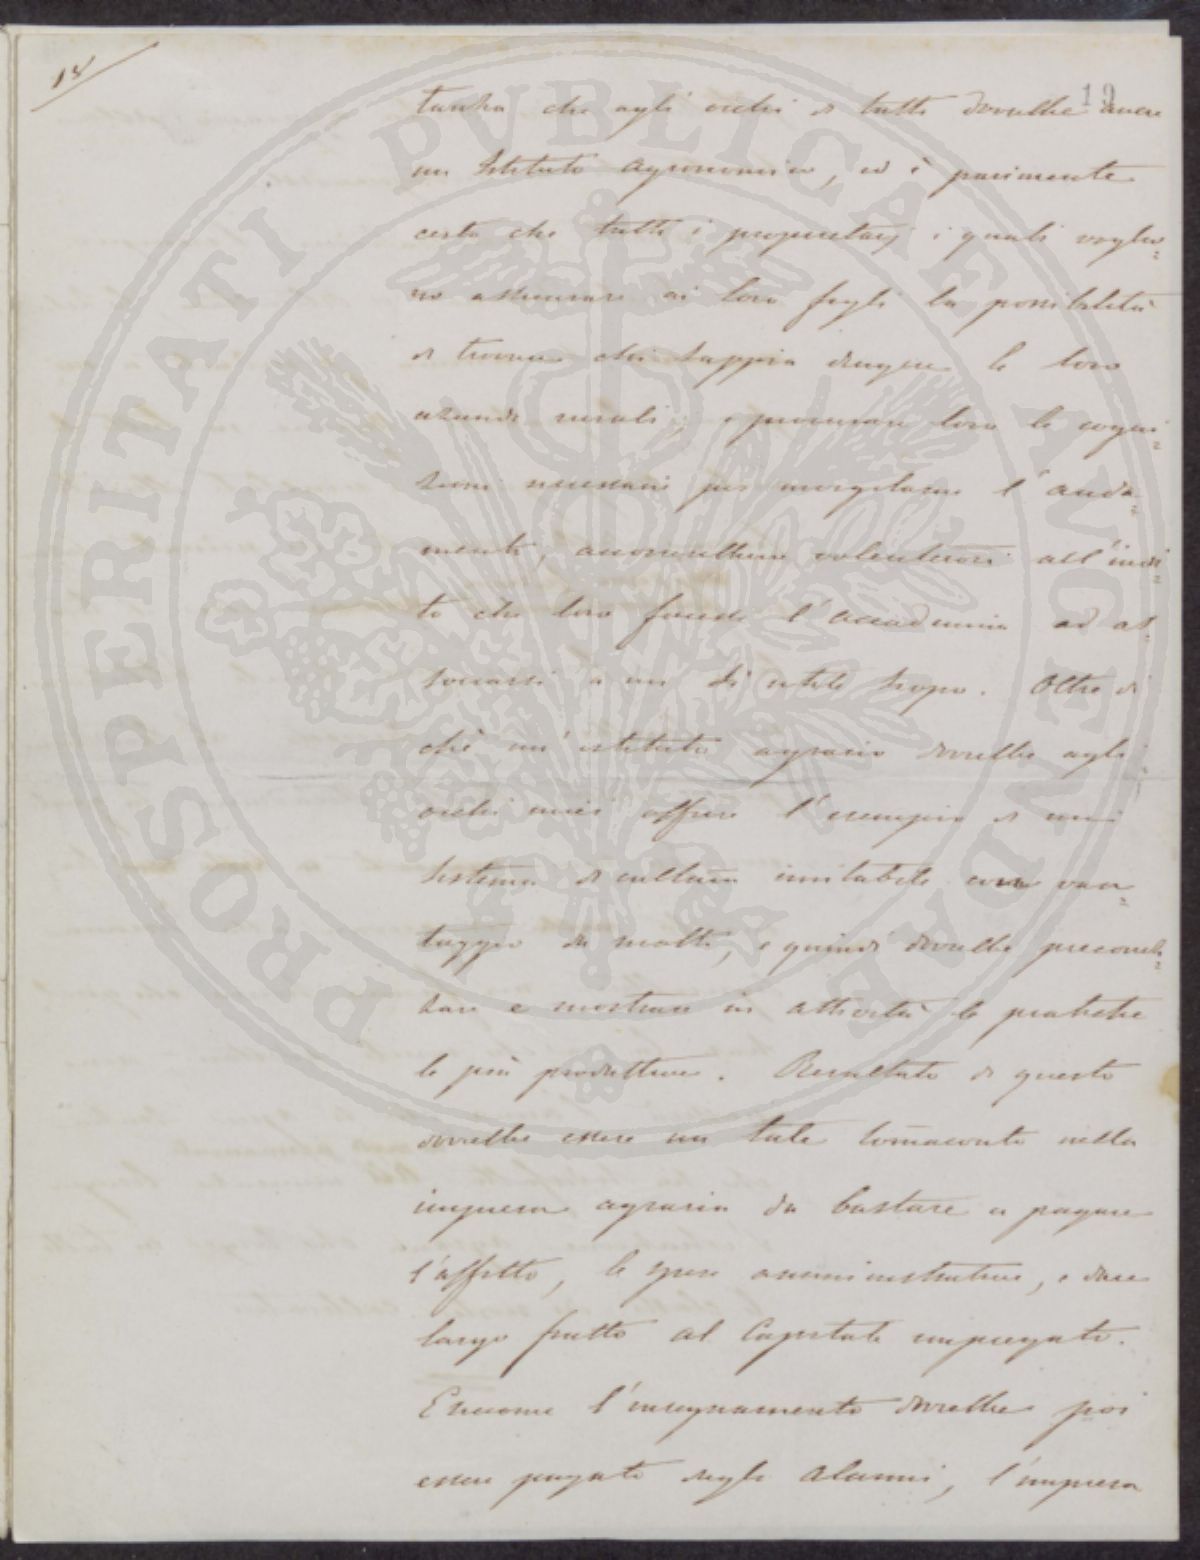 18
19
tanza che agli occhi di tutti dovrebbe avere
un Istituto Agronomico, ed è parimente
certo che tutti i proprietarj i quali voglio=
no assicurare ai loro figli la possibilità
di trovare chi sappia dirigere le loro
aziende rurali, e procurare loro le cogni=
zioni necessarie per invigilarne l'anda=
mento, acconsentirono volentieri all'invi=
to che loro facesse l'accademia ad as=
sociarsi a un sì utile scopo. Oltre di
chè un'istituto agrario dovrebbe agli
occhi miei offrire l'esempio di un
sistema di cultura imitabile con van=
taggio da molti, e quindi dovrebbe preconiz=
zare e mostrare in attività le pratiche
le più produttive. Resultato di questo
dovrebbe essere un tale tornaconto nella
impresa agraria da bastare a pagare
l'affitto, le spese amministrative, e dare
largo frutto al Capitale impiegato.
E siccome l'insegnamento dovrebbe poi
essere pagato dagli Alunni, l'impresa
PROSPERITATI PUBLICAE AUGENDAE